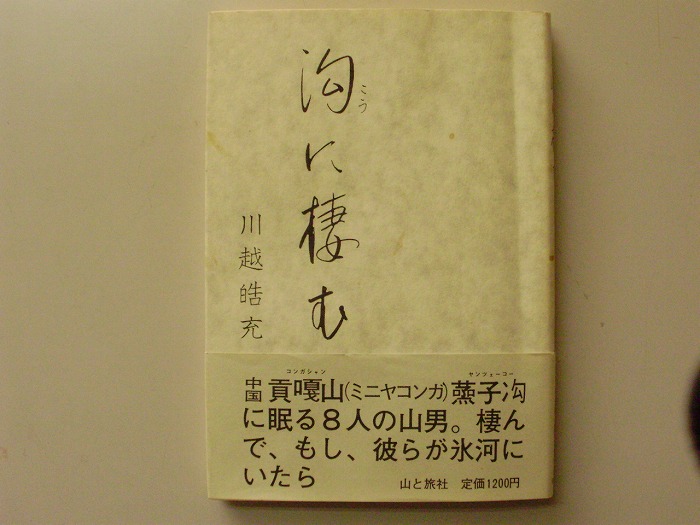 沟に棲む
こう
川越皓充
コンガシャン
ヤンツェーコー
中国貢嘎山(ミニヤコンガ)燕子沟
に眠る8人の山男。棲ん
で、もし、彼らが氷河に
いたら
山と旅社 定価1200円